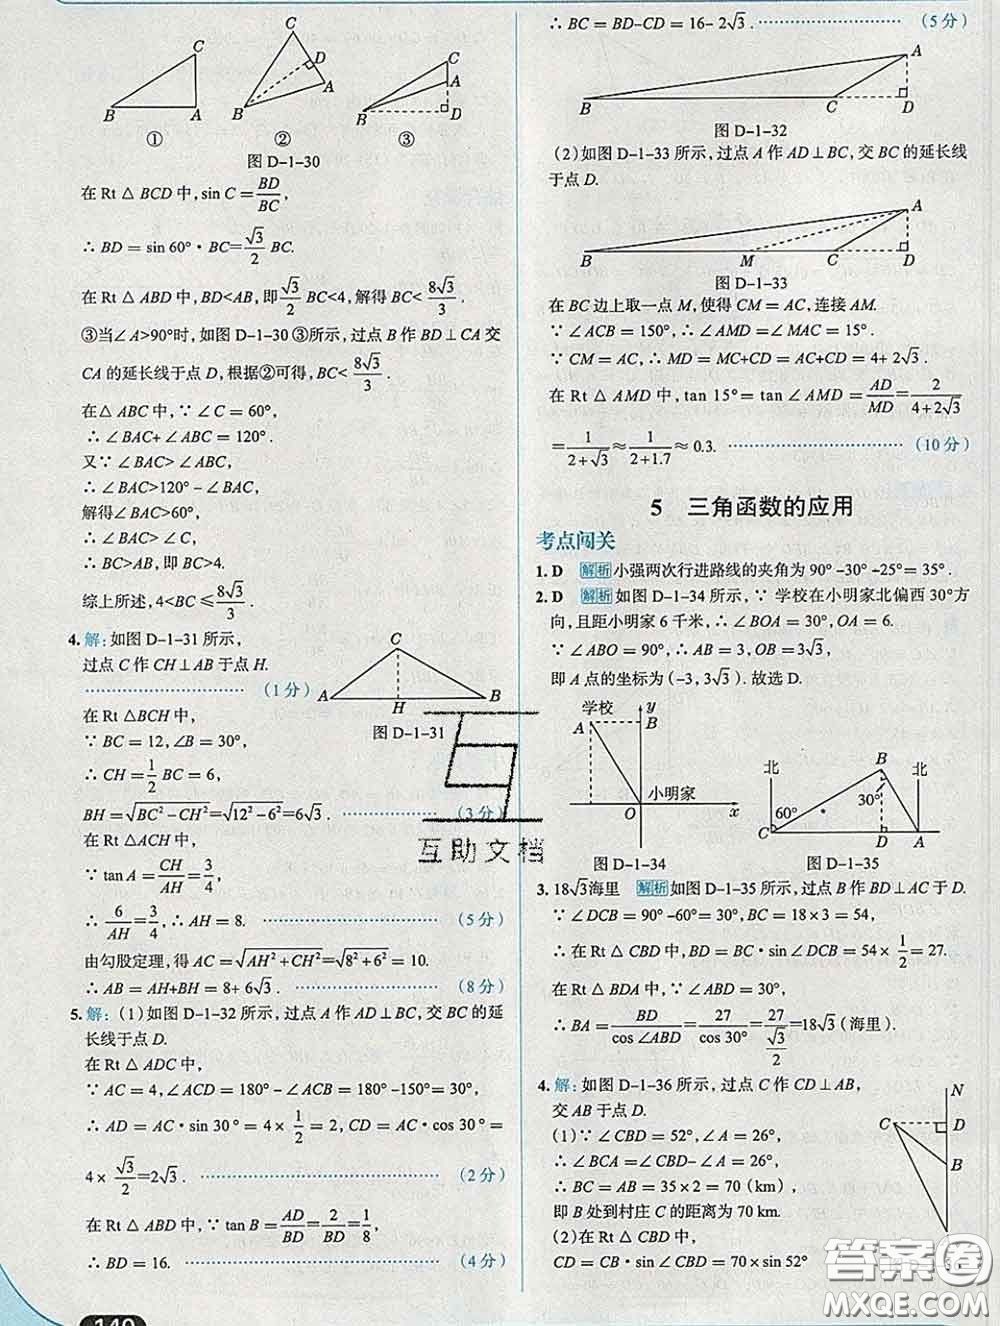 C C C
D
A
B A B A B D
① ② ③
图 D-1-30
在 Rt △ BCD 中, sin C = BD/BC,
∴ BD = sin 60°· BC = √3/2 BC.
在 Rt △ ABD 中, BD<AB, 即 √3/2 BC<4, 解得 BC< 8√3/3.
③当∠A>90°时, 如图 D-1-30 ③所示, 过点 B 作 BD ⊥ CA 交
CA 的延长线于点 D, 根据②可得, BC< 8√3/3.
在△ ABC 中, ∵ ∠C = 60°,
∴ ∠BAC+ ∠ABC = 120°.
又∵ ∠BAC> ∠ABC,
∴ ∠BAC>120° - ∠BAC,
解得∠BAC>60°,
∴ ∠BAC> ∠C,
∴ BC>AB, 即 BC>4.
综上所述, 4<BC ≤ 8√3/3.
4. 解: 如图 D-1-31 所示,
过点 C 作 CH⊥AB 于点 H.
(1 分)
C
A H B
图 D-1-31
在 Rt△BCH 中,
∵ BC = 12, ∠B = 30°,
∴ CH = 1/2 BC = 6,
BH = √(BC² - CH²) = √(12² - 6²) = 6√3. (3 分)
在 Rt△ACH 中,
∵ tan A = CH/AH = 3/4,
∴ 6/AH = 3/4, ∴ AH = 8. (5 分)
由勾股定理, 得 AC = √(AH² + CH²) = √(8² + 6²) = 10.
∴ AB = AH+BH = 8+ 6√3. (8 分)
5. 解: (1) 如图 D-1-32 所示, 过点 A 作 AD ⊥ BC, 交 BC 的延
长线于点 D.
在 Rt △ ADC 中,
∵ AC = 4, ∠ACD = 180° - ∠ACB = 180° -150° = 30°,
∴ AD = AC · sin 30° = 4 × 1/2 = 2, CD = AC · cos 30° =
4 × √3/2 = 2√3. (2 分)
在 Rt △ ABD 中, ∵ tan B = AD/BD = 2/BD = 1/8,
∴ BD = 16. (4 分)
140
∴ BC = BD-CD = 16- 2√3. (5 分)
A
B C D
图 D-1-32
(2) 如图 D-1-33 所示, 过点 A 作 AD ⊥ BC, 交 BC 的延长线
于点 D.
A
B M C D
图 D-1-33
在 BC 边上取一点 M, 使得 CM = AC, 连接 AM.
∵ ∠ACB = 150°, ∴ ∠AMD = ∠MAC = 15°.
∵ CM = AC, ∴ MD = MC+CD = AC+CD = 4+ 2√3.
在 Rt △ AMD 中, tan 15° = tan ∠AMD = AD/MD = 2/(4+2√3)
= 1/(2+√3) ≈ 1/(2+1.7) ≈ 0.3. (10 分)
5 三角函数的应用
考点闯关
1. D 解析 小强两次行进路线的夹角为 90° -30° -25° = 35°.
2. D 解析 如图 D-1-34 所示, ∵ 学校在小明家北偏西 30°方
向, 且距小明家 6 千米, ∴ ∠BOA = 30°, OA = 6.
∵ ∠ABO = 90°, ∴ AB = 3, OB = 3√3,
即 A 点的坐标为 (-3, 3√3). 故选 D.
学校 y
A B
O 小明家 x
图 D-1-34
北 B 北
60° 30°
C D A
图 D-1-35
3. 18√3 海里 解析 如图 D-1-35 所示, 过点 B 作 BD⊥AC 于 D.
∵ ∠DCB = 90° -60° = 30°, BC = 18 × 3 = 54,
∴ 在 Rt △ CBD 中, BD = BC · sin ∠DCB = 54 × 1/2 = 27.
在 Rt △ BDA 中, ∵ ∠ABD = 30°,
∴ BA = BD/cos ∠ABD = 27/cos 30° = 27/(√3/2) = 18√3 (海里).
4. 解: 如图 D-1-36 所示, 过点 C 作 CD ⊥ AB,
交 AB 于点 D.
(1) ∵ ∠CBD = 52°, ∠A = 26°,
∴ ∠BCA = ∠CBD- ∠A = 26°.
∴ BC = AB = 35 × 2 = 70 (km),
即 B 处到村庄 C 的距离为 70 km.
(2) 在 Rt △ CBD 中,
CD = CB · sin ∠CBD = 70 × sin 52°
N
C D
B
互助文档
答案圈
MXQE.COM